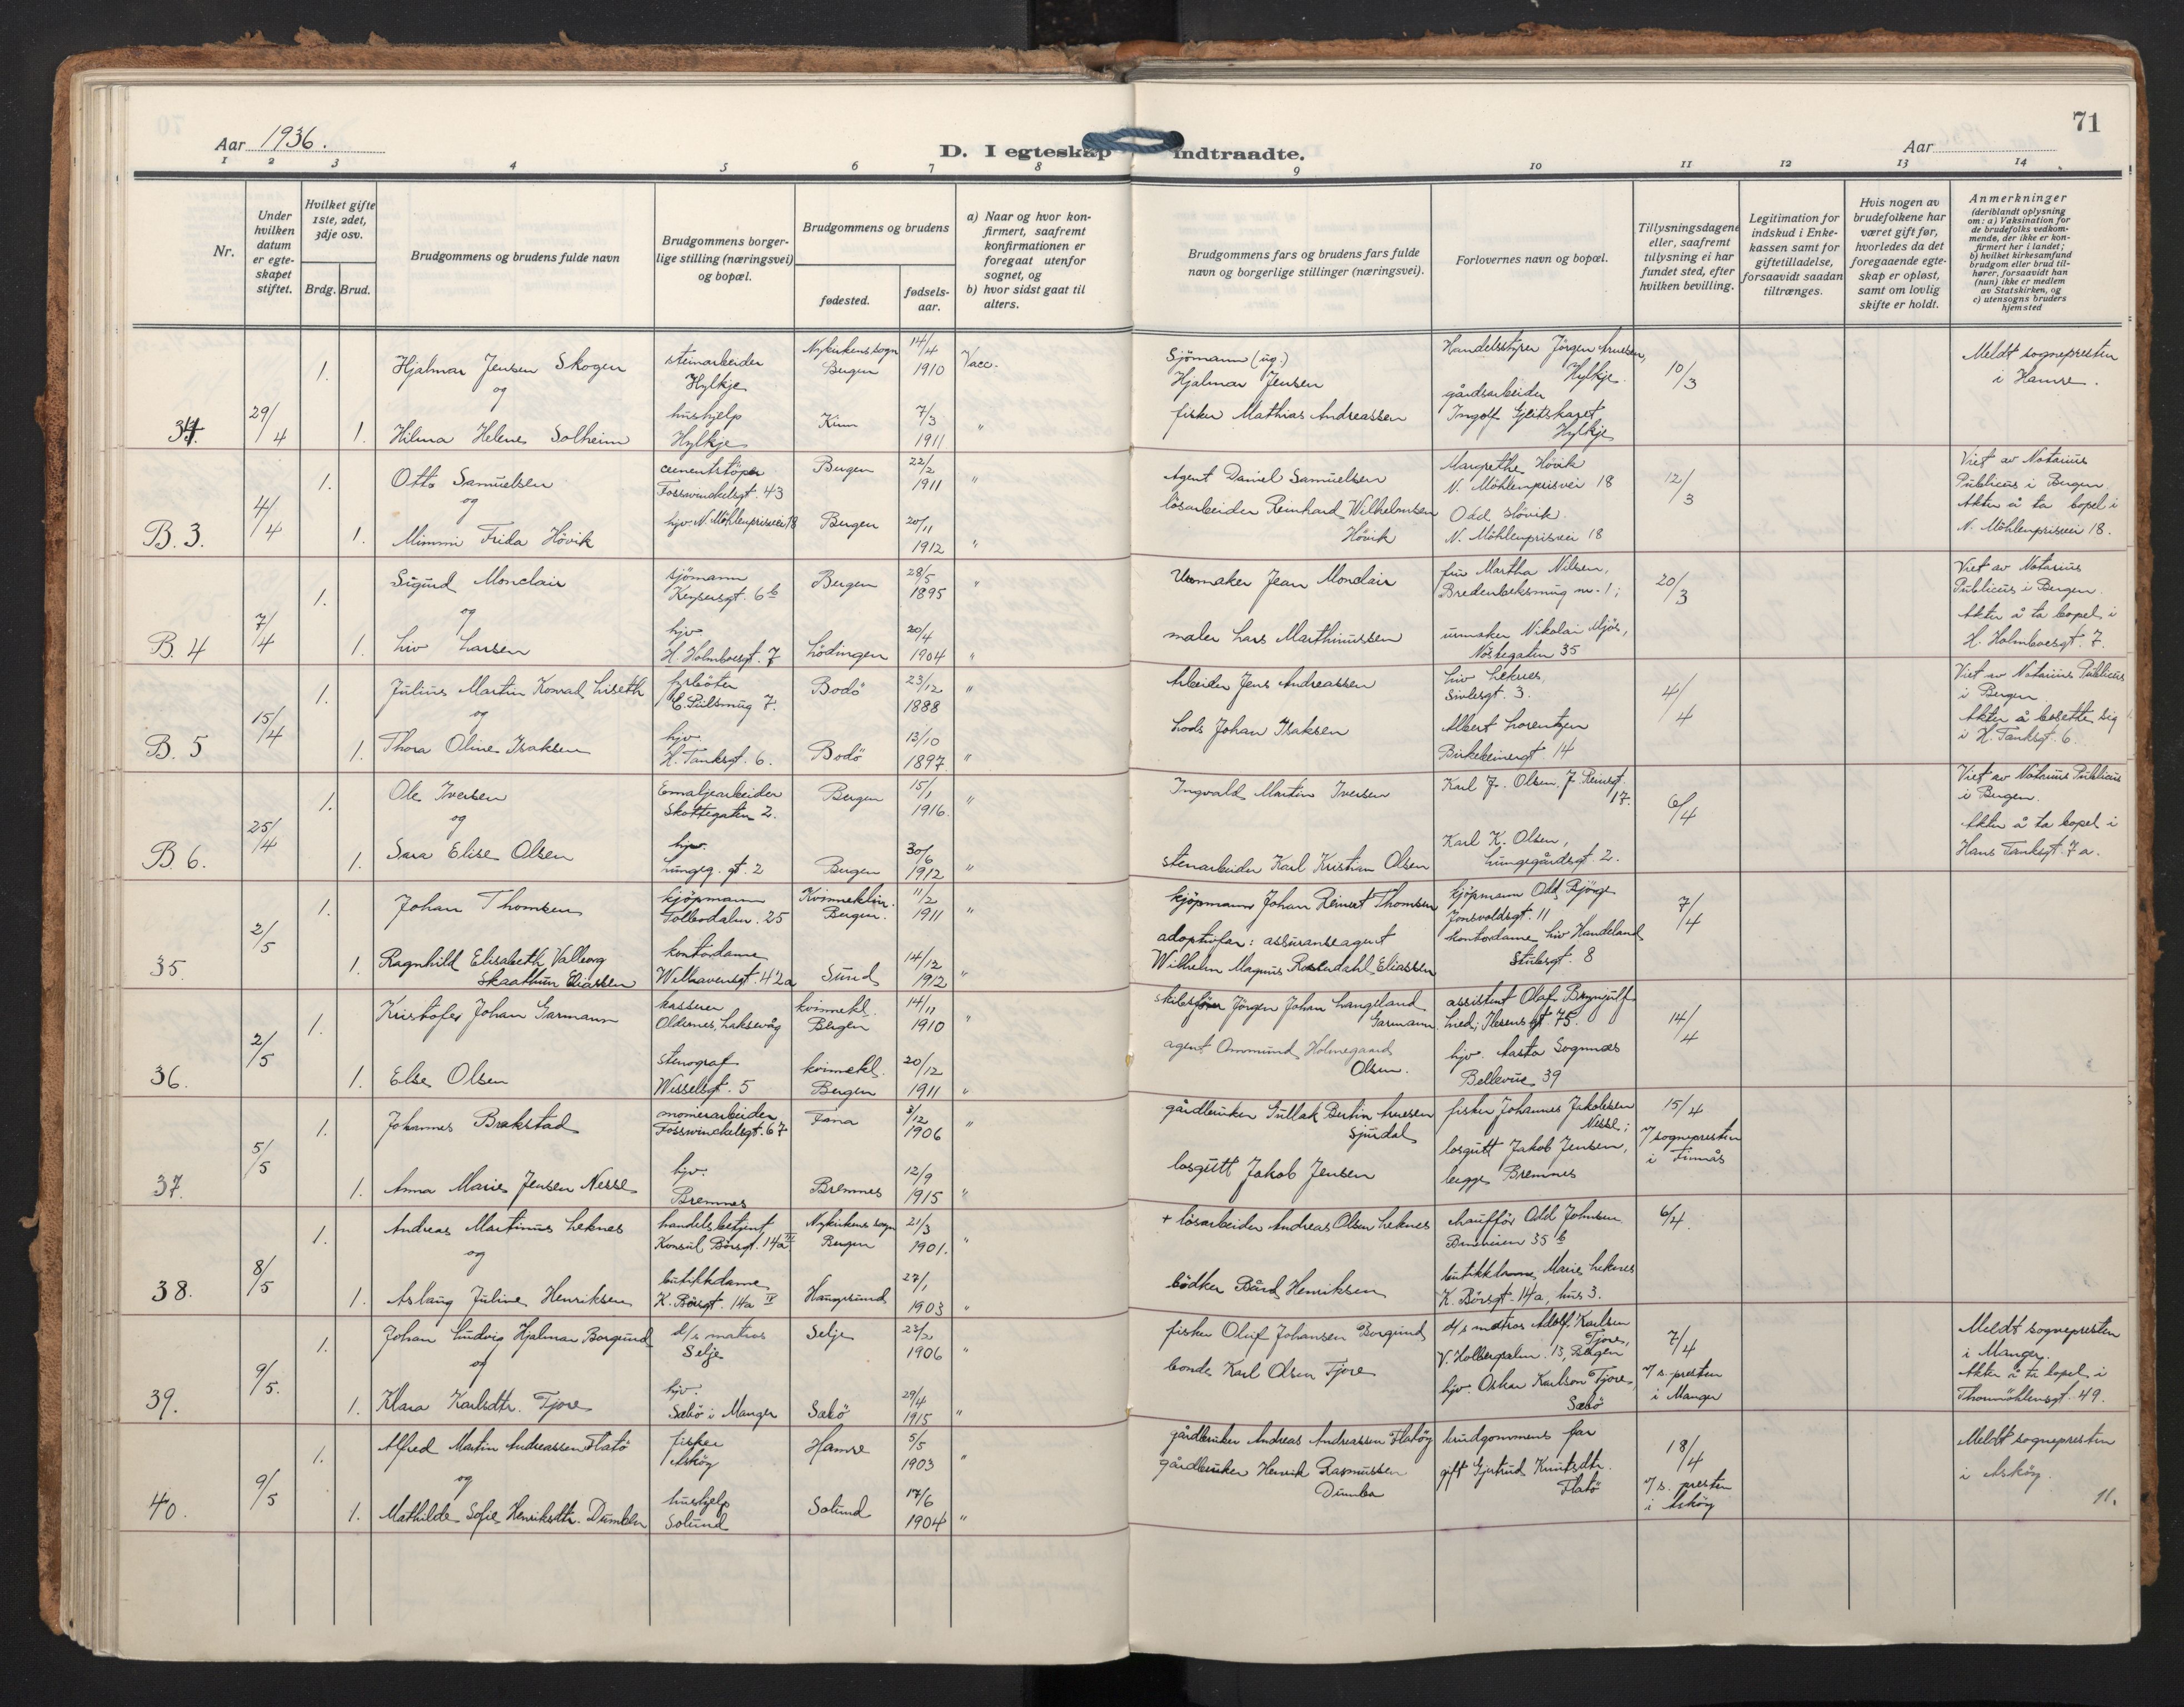 71
Aar 1936.
D. I egteskap indtraadte.
Aar
1 2 3 4 5 6 7 8 9 10 11 12 13 14
Nr.
Under hvilken datum er egteskapet stiftet.
Hvilket gifte 1ste, 2det, 3dje osv.
Brdg. Brud.
Brudgommens og brudens fulde navn
Brudgommens borgerlige stilling (næringsvei) og bopæl.
Brudgommens og brudens
fødested.
fødselsaar.
a) Naar og hvor konfirmert, saafremt konfirmationen er foregaat utenfor sognet, og
b) hvor sidst gaat til alters.
Brudgommens fars og brudens fars fulde navn og borgerlige stillinger (næringsvei).
Forlovernes navn og bopæl.
Tillysningsdagene eller, saafremt tillysning ei har fundet sted, efter hvilken bevilling.
Legitimation for indskud i Enkekassen samt for giftetilladelse, forsaavidt saadan tiltrænges.
Hvis nogen av brudefolkene har været gift før, hvorledes da det foregaaende egteskap er opløst, samt om lovlig skifte er holdt.
Anmerkninger
(deriblandt oplysning om: a) Vaksination for de brudefolks vedkommende, der ikke er konfirmert her i landet;
b) hvilket kirkesamfund brudgom eller brud tilhører, forsaavidt han (hun) ikke er medlem av Statskirken, og
c) utensogns bruders hjemsted
34. 29/4
1. Hjalmar Jensen Skogen steinarbeider Hylkje Nykirkens sogn Bergen 14/4 1910 Vacc.
og
1. Hilma Helene Solheim hushjelp Hylkje Kinn 7/3 1911 "
Sjömann (ug.) Hjalmar Jensen
fisker Mathias Andreassen
Handelsstyrer Jörgen Arnesen, Hylkje.
gårdsarbeider Ingolf Hylkje
10/3
Meldt sognepresten i Hamre.
B. 3. 4/4
1. Otto Samuelsen cementstöper Fosswinckelsgt. 43 Bergen 22/2 1911 "
og
1. Mimmi Frida Hövik hjv. N. Möhlenprisvei 18 Bergen 20/11 1912 "
Agent Daniel Samuelsen
lösarbeider Reinhard Wilhelmsen Hövik
Margrethe Hövik N. Möhlenprisvei 18
Odd Hövik N. Möhlenprisvei 18
12/3
Viet av Notarius Publicus i Bergen.
Akter å ta bopel i N. Möhlenprisvei 18.
B. 4 7/4
1. Sigurd Monclair sjömann Keysersgt. 6 b Bergen 28/5 1895 "
og
1. Liv Larsen hjv. H. Holmboesgt. 7 Lödingen 20/4 1904 "
Urmaker Jean Monclair
maler Lars Marthinussen
fru Martha Nilsen, Bredenbeksmug nr. 1;
urmaker Nikolai Mjös, Nöstegaten 35
20/3
Viet av Notarius Publicus i Bergen.
Akter å ta bopel i H. Holmboesgt. 7.
B. 5 15/4
1. Julius Martin Konrad Liseth fyrböter 7. Bodö 23/12 1888 "
og
1. Thora Oline Isaksen hjv. H. Tanksgt. 6. Bodö 13/10 1897. "
Arbeider Jens Andreassen
Lods Johan Isaksen
Liv Leknes, Sivlesgt. 3.
Albert Lorentzen Birkebeinergt. 14
4/4
Viet av Notarius Publicus i Bergen
Akter å bosette sig i H. Tanksgt. 6.
B 6. 25/4
1. Ole Iversen Emaljearbeider Skottegaten 2. Bergen 15/1 1916. "
og
1. Sara Elise Olsen hjv. Lungeg. gt. 2 Bergen 30/6 1912 "
Ingvald Martin Iversen
stenarbeider Karl Kristian Olsen
Karl J. Olsen. J. Reinsgt. 17.
Karl K. Olsen, Lungegårdsgt. 2.
6/4
Viet av Notarius Publicus i Bergen.
Akter å ta bopel i Hans Tanksgt. 7 a.
35. 2/5
1. Johan Thomsen kjöpmann Tollbodalm. 25 Kvinneklin. Bergen. 11/2 1911 "
1. Ragnhild Elisabeth Valborg Skaathun Eliassen kontordame Welhavensgt. 42a Sund 14/12 1912 "
kjöpmann Johan Reinert Thomsen
adoptivfar: assuranseagent Wilhelm Magnus Rosendahl Eliassen
kjöpmann Odd Jonsvoldsgt. 11
kontordame Liv Handeland Stübsgt. 8
7/4
36. 2/5
1. Kristofer Johan Garmann kasserer Oldernes, Laksevåg kvinnekl. Bergen 14/11 1910 "
1. Else Olsen stenograf Wesselsgt. 5 kvinnekl. Bergen 20/12 1911 "
skibsförer Jörgen Johan Langeland Garmann
agent Ommund Holmegaard Olsen.
assistent Olaf Brynjulf Lied; Ibsensgt. 75.
hjv. Aasta Sognnæs Bellevue 39
14/4
37. 5/5
1. Johannes Brakstad monierarbeider Fosswinckelsgt. 67 Fana 3/12 1906 "
1. Anna Marie Jensen Nesse hjv. Bremnes Bremnes 12/9 1915 "
gårdbruker Gullak Bertin Arnesen Sjurdal
losgutt Jakob Jensen
fisker Johannes Jakobsen Nesse;
losgutt Jakob Jensen, begge Bremnes
15/4
v/ sognepresten i Finnås
38. 8/5
1. Andreas Martinus Leknes handelsbetjent Konsul Börsgt. 14a III Nykirkens sogn Bergen 21/3 1901. "
og
1. Aslaug Juline Henriksen butikkdame K. Börsgt. 14a IV Haugesund 27/1 1903 "
+ lösarbeider Andreas Olsen Leknes
bödker Bård Henriksen
chaufför Odd Johnsen 35 b
butikkdame Marie Leknes K. Börsgt. 14a, hus 3.
6/4.
39. 9/5.
1. Johan Ludvig Hjalmar Borgund d/s matros Selje Selje 23/2 1906 "
og
1. Klara Karlsdtr. Tjore hjv. Sæbö i Manger Sæbö 29/4 1915 "
fisker Oluf Johansen Borgund
bonde Karl Olsen Tjore
d/s matros Adolf Karlsen Tjore, V. Holbergsalm. 13, Bergen
hjv. Oskar Karlson Tjore, Sæbö
7/4
v/ s. presten i Manger
Meldt sognepresten i Manger.
Akter å ta bopel i Thormöhlensgt. 49.
40. 9/5
1. Alfred Martin Andreassen Flatö fisker Asköy Hamre 5/5 1903 "
og
1. Mathilde Sofie Henriksdtr. Dumben hushjelp Solund Solund 17/6 1904 "
gårdbruker Andreas Andreassen Flatöy
gårdbruker Henrik Rasmussen Dumben
brudgommens far
gift Gjertrud Knutsdtr. Flatö
18/4
v/ s. presten i Asköy
Meldt sognepresten i Asköy.
11.